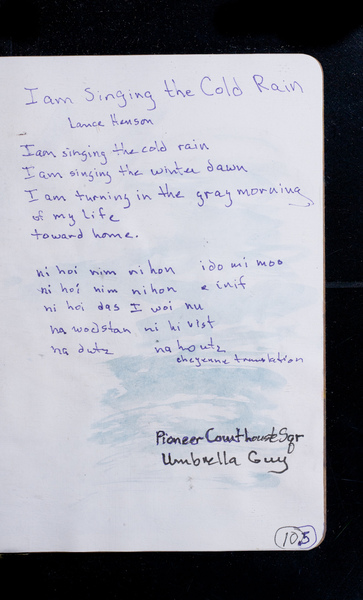 I am Singing the Cold Rain
Lance Henson
I am singing the cold rain
I am singing the winter dawn
I am turning in the gray morning
of my life
toward home.
ni hoi nim ni hon ido mi moo
ni hoi nim ni hon e inif
ni hoi das I woi nu
na wodstan ni hi vist
na dutz na ho utz
cheyenne translation
Pioneer Courthouse Sqr
Umbrella Guy
105